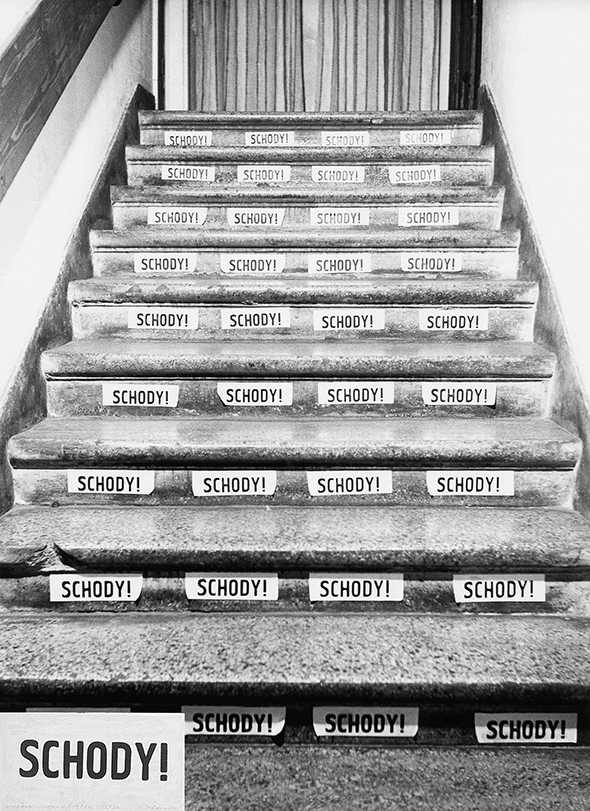 SCHODY! SCHODY! SCHODY! SCHODY!
SCHODY! SCHODY! SCHODY! SCHODY!
SCHODY! SCHODY! SCHODY! SCHODY!
SCHODY! SCHODY! SCHODY! SCHODY!
SCHODY! SCHODY! SCHODY! SCHODY!
SCHODY! SCHODY! SCHODY! SCHODY!
SCHODY! SCHODY! SCHODY! SCHODY!
SCHODY! SCHODY! SCHODY! SCHODY!
SCHODY! SCHODY! SCHODY!
SCHODY!